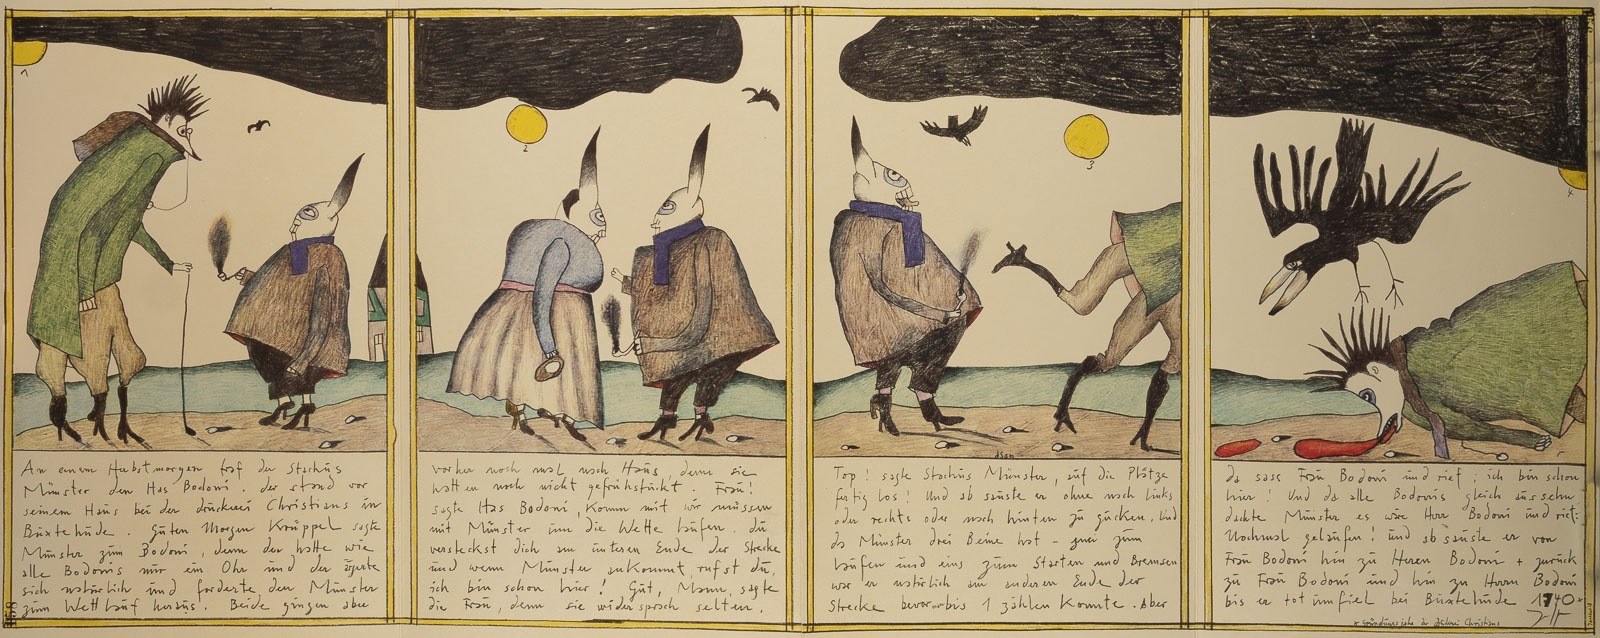 1
An einem Herbstmorgen traf der Stachüs
Münster den Has Bodoni. der stand vor
seinem Haüs bei der drückerei Christians in
Büxtehüde. Güten Morgen Krüppel sagte
Münster züm Bodoni, denn der hatte wie
alle Bodonis nür ein Ohr und der ärgerte
sich natürlich und forderte den Münster
züm Wettlaüf heraüs. Beide gingen aber
2
vorher noch mal nach Haüs, denn sie
hatten noch nicht gefrühstückt. Fraü!
sagte Has Bodoni, Komm mit wir müssen
mit Münster üm die Wette laüfen. dü
versteckst dich am ünteren Ende der Strecke
ünd wenn Münster ankommt, rüfst dü,
ich bin schon hier! Güt, Mann, sagte
die Fraü, denn sie widersprach selten.
3
Top! sagte Stachüs Münster, aüf die Plätze
fertig los! Und ab saüste er ohne nach links
oder rechts oder nach hinten zü gücken. Und
da Münster drei Beine hat - zwei züm
Laüfen ünd eins züm Starten ünd Bremsen
war er natürlich am anderen Ende der
Strecke bevor er bis 1 zählen konnte. Aber
4
da sass Fraü Bodoni ünd rief; ich bin schon
hier! Und da alle Bodonis gleich aüssehn
dachte Münster es wäre Herr Bodoni ünd rief:
Nochmal gelaüfen! ünd ab saüste er von
Fraü Bodoni hin zü Herrn Bodoni + zürück
zü Fraü Bodoni ünd hin zü Herrn Bodoni
bis er tot ümfiel bei Büxtehüde 1740*
* Gründüngsjahr der Christians